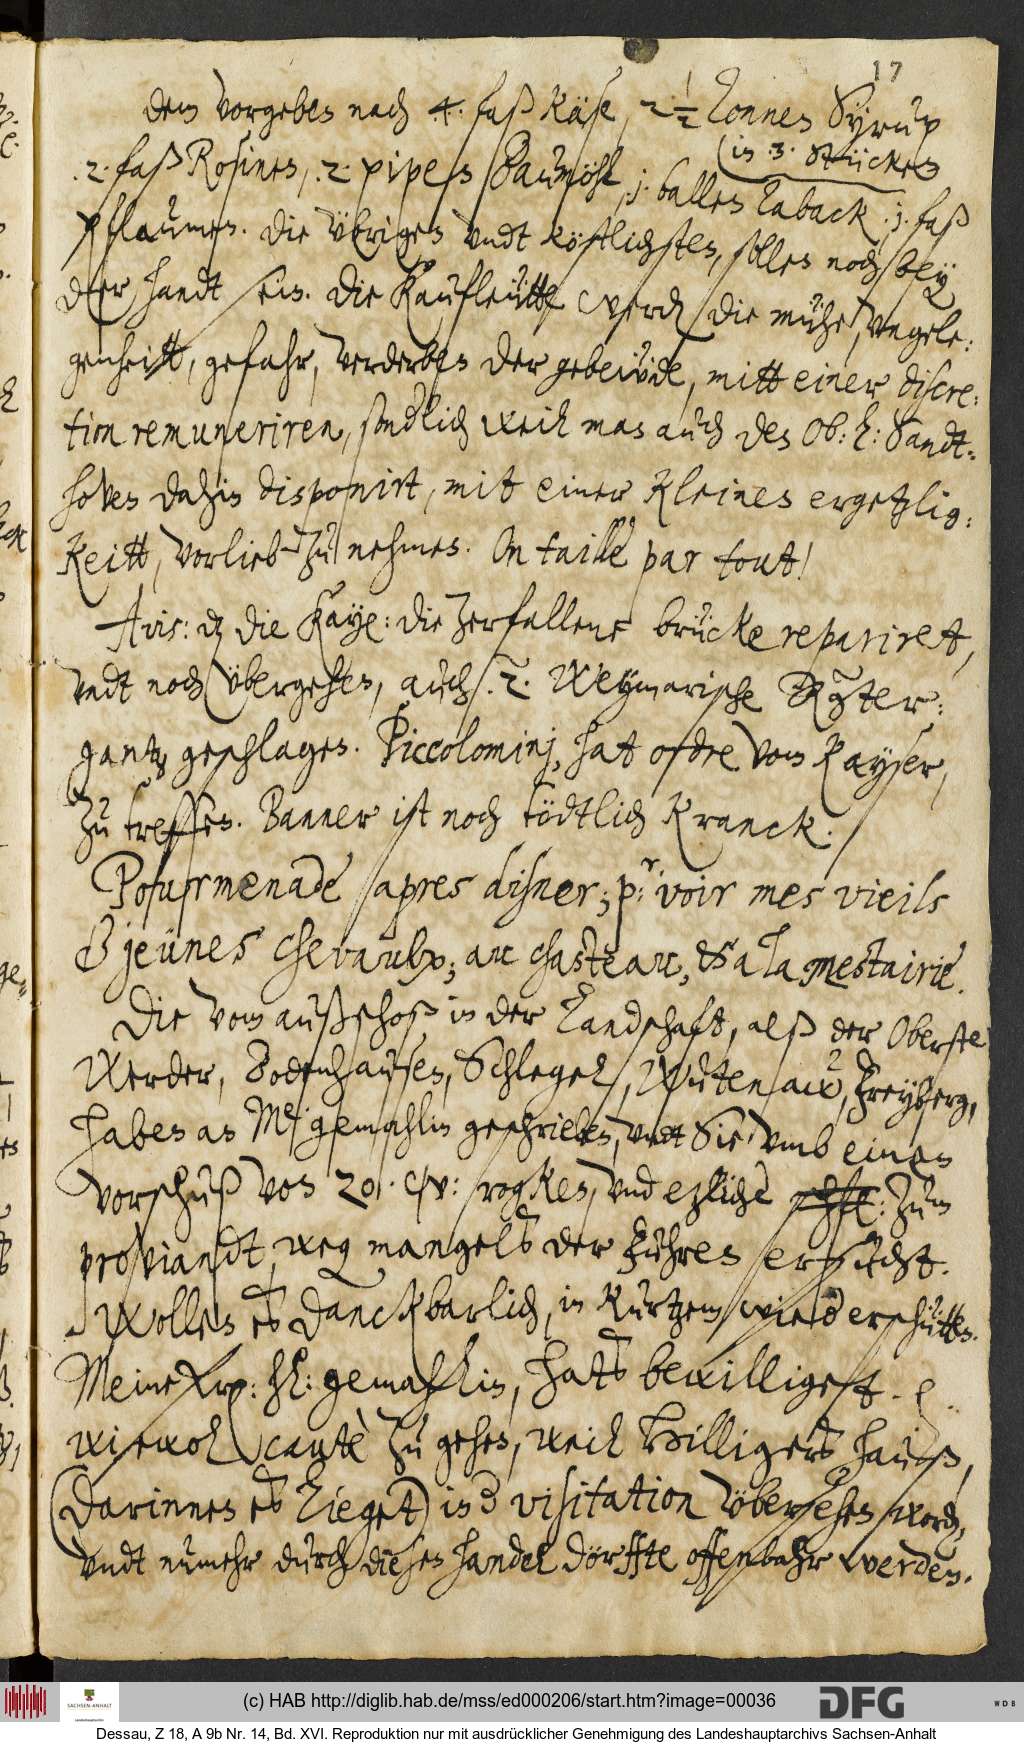 17
dem vorgeben nach 4. faß Käse, 2½ Tonnen Syrup
(in 3. Stücken
.2. faß Rosinen, .2. pipen Baumöhl .j. ballen Taback .j. faß
Pflaumen. Die übrigen vndt köstlichsten, sollen noch bey
der handt sein. Die Kaufleütte werden die mühe, vngele:
genheitt, gefahr, verderben der gebeüde, mitt einer discre:
tion remuneriren, sondlich weil man auch den Ob: L: Sandt-
hoven dahin disponirt, mit einer kleinen ergetzlig:
keitt, vorlieb zu nehmen. On taille par tout!
Avis: dz die Kaye: die zerfallene brücke repariret,
vndt noch übergehen, auch .2. Weymarische Regter:
gantz geschlagen. Piccolominj, hat ordre vom Kayser,
zu treffen. Banner ist noch tödtlich kranck.
Pourmenade apres disner; p:r voir mes vieils
& jeünes chevaulx; au chasteau, & a la mestairie.
Die vom außschoß in der Landschaft, alß der Oberste
Werder, Bodenhausen, Schlegel, Wutenaw, Freyberg,
haben an Me: gemahlin geschrieben, vndt Sie vmb einen
vorschuß von 20. W: rogken, vnd etzliche zum
proviandt, weg mangels der Fuhren ersucht.
Wollen es danckbarlich, in kurtzem wiederschütten.
Meine Frewn: hl: gemahlin, hats bewilliget.
wiewol caute zu gehen, weil Hilligers hauß,
(darinnen es lieget) in der visitation übersehen worden,
vndt numehr durch diesen handel dörffte offenbahr werden.
(c) HAB http://diglib.hab.de/mss/ed000206/start.htm?image=00036
SACHSEN-ANHALT
DFG
WDB
Dessau, Z 18, A 9b Nr. 14, Bd. XVI. Reproduktion nur mit ausdrücklicher Genehmigung des Landeshauptarchivs Sachsen-Anhalt